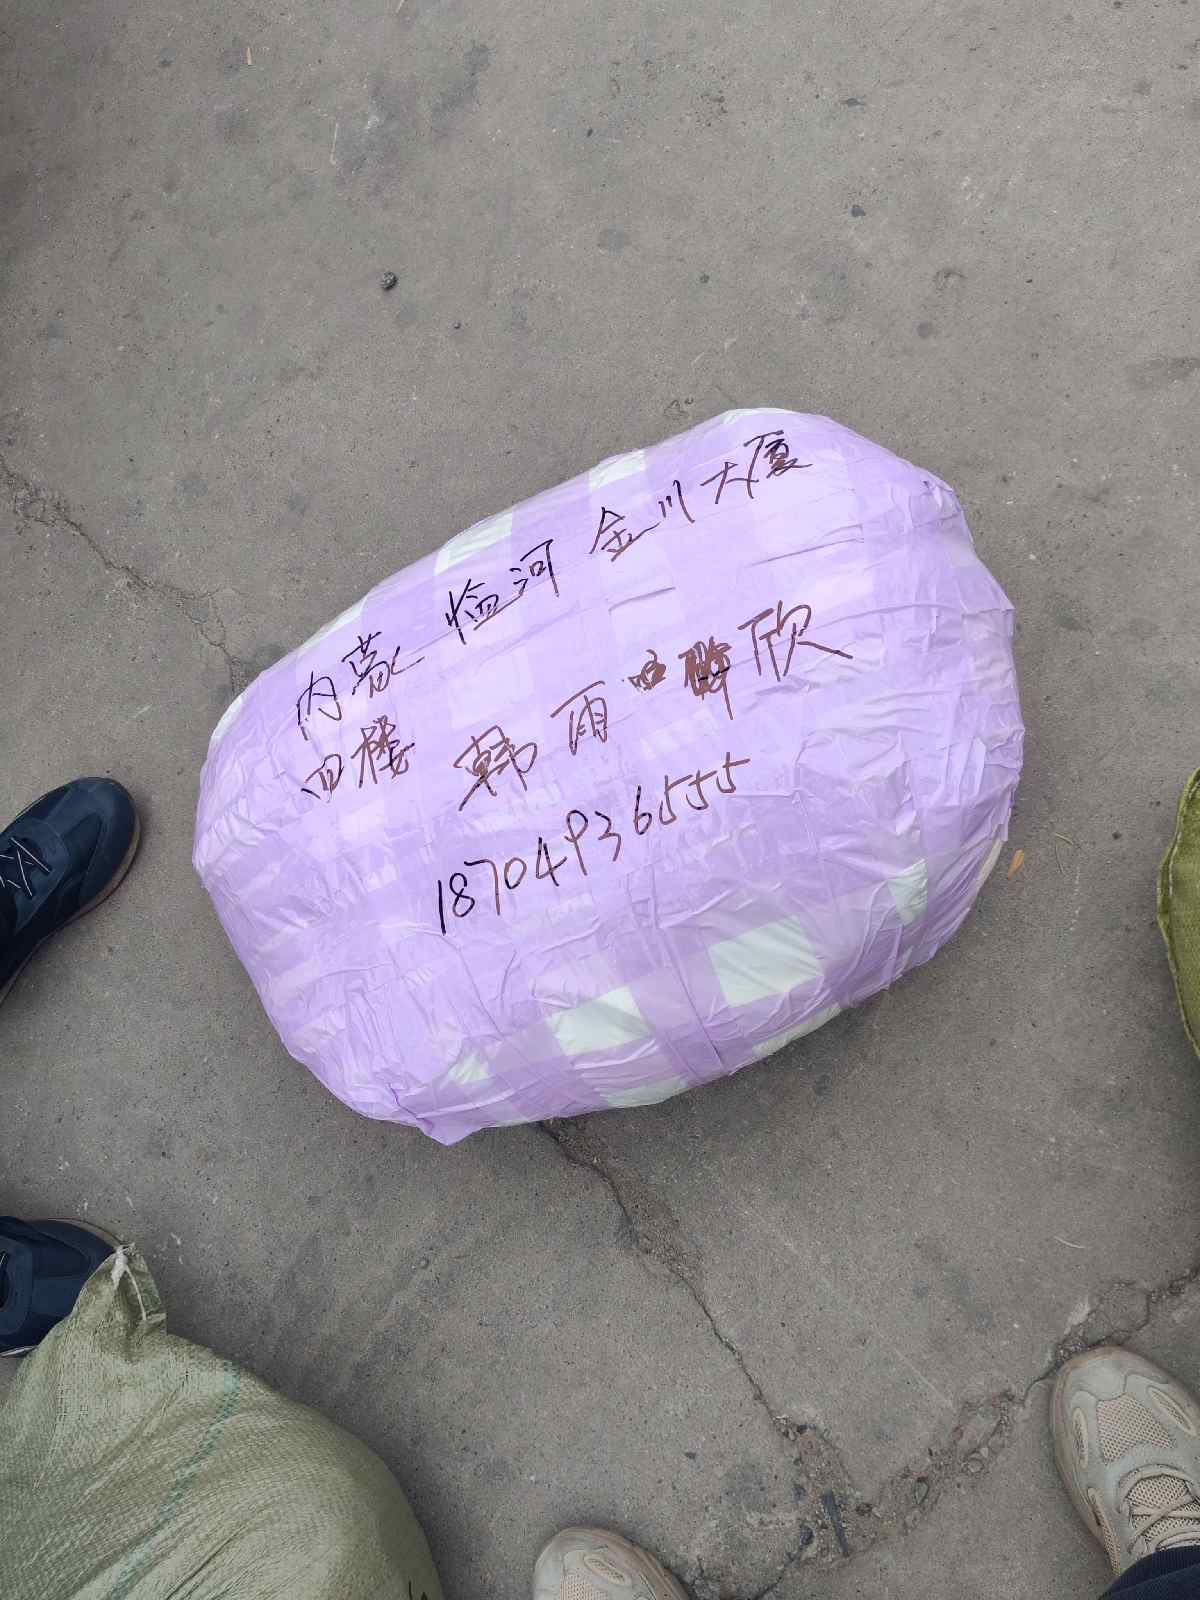 内蒙 临河 金川大厦
四楼 韩雨欣
18704936555